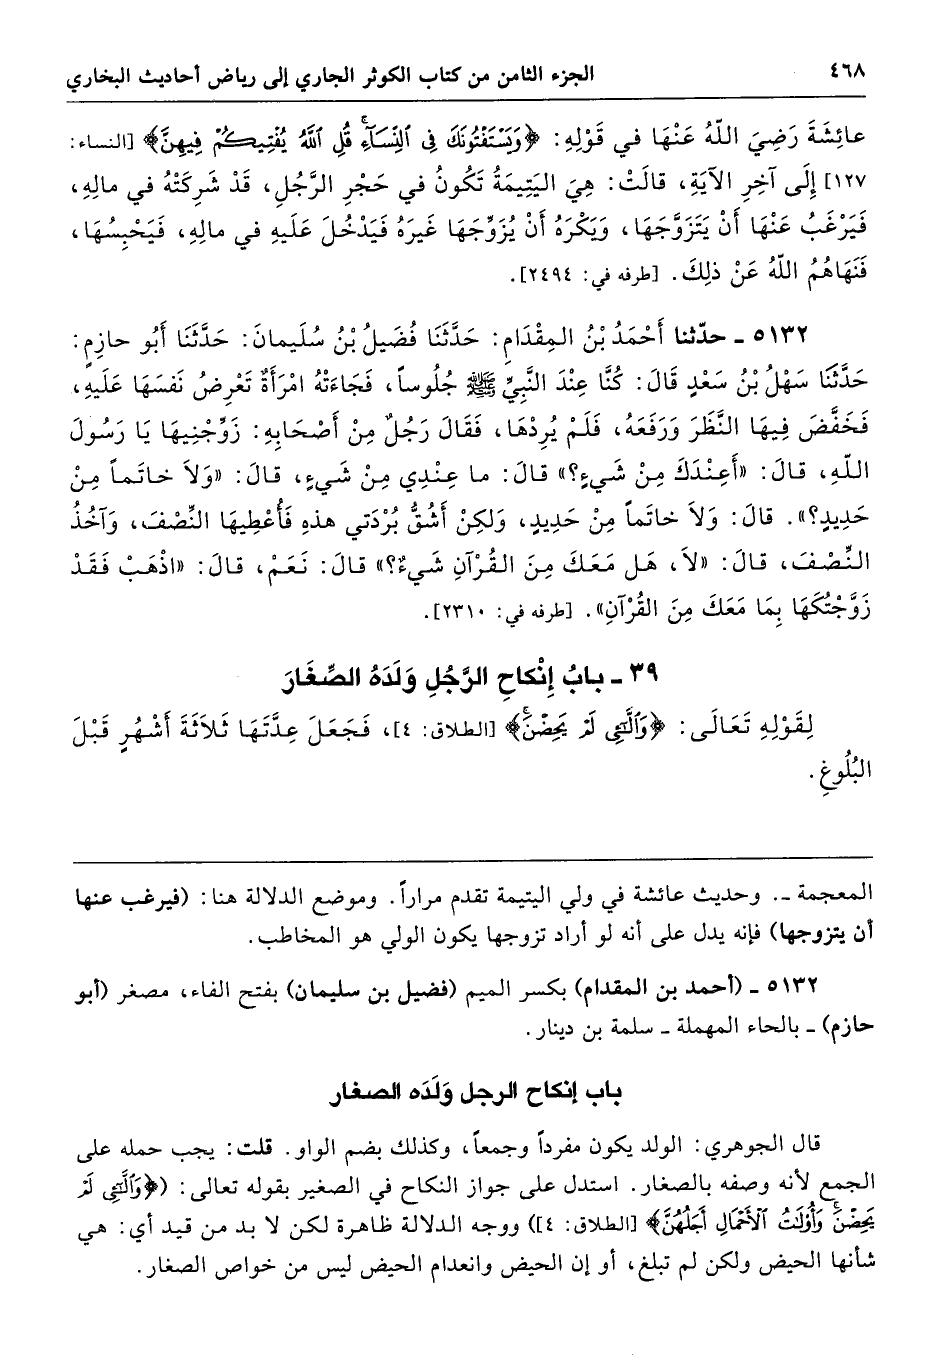 ٤٦٨ الجزء الثامن من كتاب الكوثر الجاري إلى رياض أحاديث البخاري
عائِشَةَ رَضِيَ اللّهُ عَنْهَا في قَوْلِهِ: ﴿وَيَسْتَفْتُونَكَ فِى ٱلنِّسَآءِۖ قُلِ ٱللَّهُ يُفْتِيكُمْ فِيهِنَّ﴾ [النساء:
١٢٧] إِلَى آخِرِ الآيَةِ، قالَتْ: هِيَ اليَتِيمَةُ تَكُونُ في حَجْرِ الرَّجُلِ، قَدْ شَرِكَتْهُ في مالِهِ،
فَيَرْغَبُ عَنْهَا أَنْ يَتَزَوَّجَهَا، وَيَكْرَهُ أَنْ يُزَوِّجَهَا غَيرَهُ فَيَدْخُلَ عَلَيهِ في مالِهِ، فَيَحْبِسُهَا،
فَنَهَاهُمُ اللّهُ عَنْ ذلِكَ. [طرفه في: ٢٤٩٤].
٥١٣٢ ـ حدّثنا أَحْمَدُ بْنُ المِقْدَامِ: حَدَّثَنَا فُضَيلُ بْنُ سُلَيمانَ: حَدَّثَنَا أَبُو حازِمٍ:
حَدَّثَنَا سَهْلُ بْنُ سَعْدٍ قَالَ: كُنَّا عِنْدَ النَّبِيِّ ﷺ جُلُوساً، فَجَاءَتْهُ امْرَأَةٌ تَعْرِضُ نَفسَهَا عَلَيهِ،
فَخَفَّضَ فِيهَا النَّظَرَ وَرَفَعَهُ، فَلَمْ يُرِدْهَا، فَقَالَ رَجُلٌ مِنْ أَصْحَابِهِ: زَوِّجْنِيهَا يَا رَسُولَ
اللّهِ، قالَ: «أَعِنْدَكَ مِنْ شَيءٍ؟» قالَ: ما عِنْدِي مِنْ شَيءٍ، قالَ: «وَلاَ خاتَماً مِنْ
حَدِيدٍ؟». قالَ: وَلاَ خاتَماً مِنْ حَدِيدٍ، وَلكِنْ أَشُقُّ بُرْدَتي هذهِ فَأُعْطِيهَا النِّصْفَ، وَآخُذُ
النِّصْفَ، قالَ: «لاَ، هَل مَعَكَ مِنَ القُرْآنِ شَيءٌ؟» قالَ: نَعَمْ، قالَ: «اذْهَبْ فَقَدْ
زَوَّجْتُكَهَا بِمَا مَعَكَ مِنَ القُرْآنِ». [طرفه في: ٢٣١٠].
٣٩ ـ بابُ إِنْكاحِ الرَّجُلِ وَلَدَهُ الصِّغَارَ
لِقَوْلِهِ تَعَالَى: ﴿وَٱلَّٰٓـِٔى لَمْ يَحِضْنَۚ﴾ [الطلاق: ٤]، فَجَعَلَ عِدَّتَهَا ثَلاَثَةَ أَشْهُرٍ قَبْلَ
البُلُوغِ.
المعجمة ـ. وحديث عائشة في ولي اليتيمة تقدم مراراً. وموضع الدلالة هنا: (فيرغب عنها
أن يتزوجها) فإنه يدل على أنه لو أراد تزوجها يكون الولي هو المخاطب.
٥١٣٢ ـ (أحمد بن المقدام) بكسر الميم (فضيل بن سليمان) بفتح الفاء، مصغر (أبو
حازم) ـ بالحاء المهملة ـ سلمة بن دينار.
باب إنكاح الرجل وَلَدَه الصغار
قال الجوهري: الولد يكون مفرداً وجمعاً، وكذلك بضم الواو. قلت: يجب حمله على
الجمع لأنه وصفه بالصغار. استدل على جواز النكاح في الصغير بقوله تعالى: (﴿وَٱلَّٰٓـِٔى لَمْ
يَحِضْنَۚ وَأُوْلَٰتُ ٱلْأَحْمَالِ أَجَلُهُنَّ﴾ [الطلاق: ٤]) ووجه الدلالة ظاهرة لكن لا بد من قيد أي: هي
شأنها الحيض ولكن لم تبلغ، أو إن الحيض وانعدام الحيض ليس من خواص الصغار.